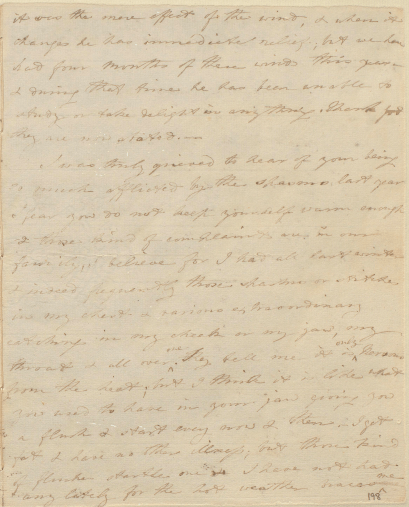 it was the mere effect of the wind, & when it
changes he has immediate relief, but we have
had four months of these winds this year
& during that time he has been unable to
study or take delight in any thing. Thank god
they are now abated.—
I was truly grieved to hear of your being
so much afflicted by the spasms last year
I fear you do not keep yourself warm enough
& these kind of complaints are in our
family, I believe for I had all last winter
& indeed frequently those
in my chest & various extraordinary
catching in my cheeks or my jaw, my
throat & all over. They tell me it is only
from the heat, but I think it is like that
you used to have in your jaw giving you
a flush & start every now & then. I get
out & have no other illness, but those kind
of flushes startle one & I have not had
any lately for the hot weather
198